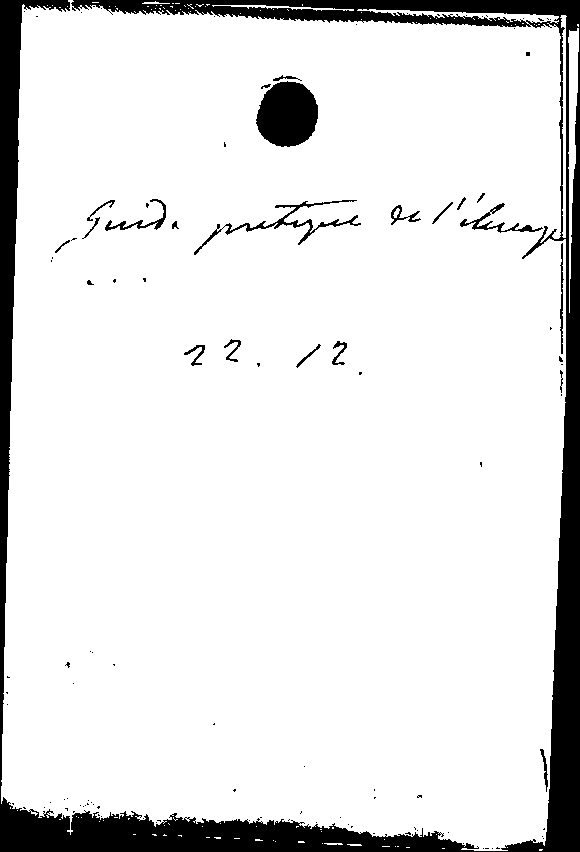 Guide pratique de l'élevage
...
22.12.